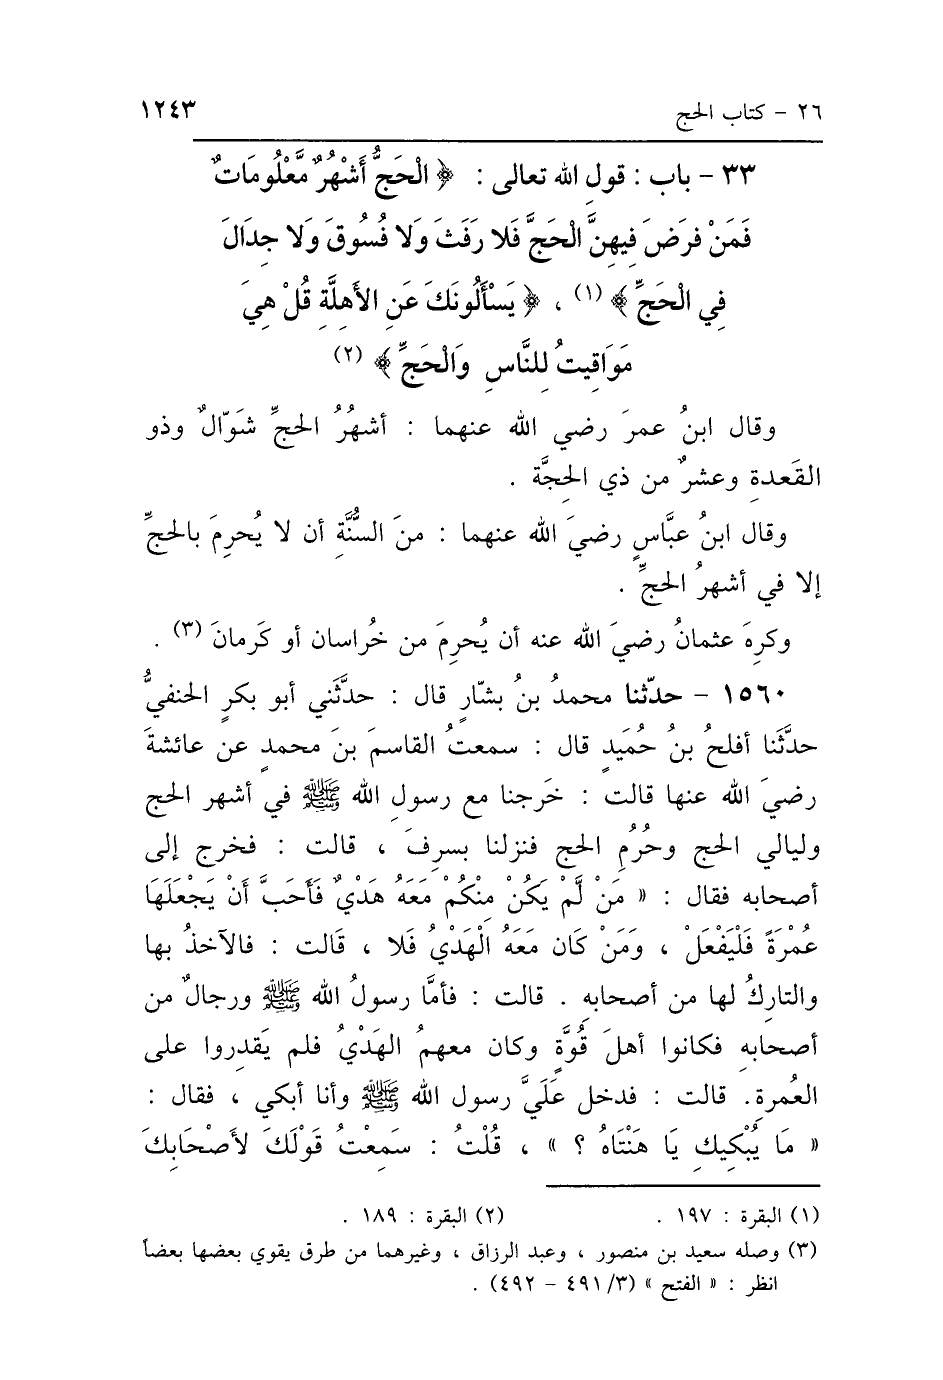 ٢٦ - كتاب الحج ١٢٤٣
٣٣ - باب : قولِ الله تعالى : ﴿ الْحَجُّ أَشْهُرٌ مَّعْلُومَاتٌ
فَمَنْ فرَضَ فِيهِنَّ الْحَجَّ فَلا رَفَثَ وَلا فُسُوقَ وَلا جِدَالَ
فِي الْحَجِّ ﴾ (١) ، ﴿ يَسْأَلُونَكَ عَنِ الأَهِلَّةِ قُلْ هِيَ
مَوَاقِيتُ لِلنَّاسِ وَالْحَجِّ ﴾ (٢)
وقال ابنُ عمرَ رضي الله عنهما : أشهُرُ الحجِّ شَوّالٌ وذو
القَعدةِ وعشرٌ من ذي الحِجَّة .
وقال ابنُ عبَّاسٍ رضيَ الله عنهما : منَ السُّنَّةِ أن لا يُحرِمَ بالحجِّ
إلا في أشهرُ الحجِّ .
وكرِهَ عثمانُ رضيَ الله عنه أن يُحرِمَ من خُراسان أو كَرمانَ (٣) .
١٥٦٠ - حدّثنا محمدُ بنُ بشّارٍ قال : حدَّثَني أبو بكرٍ الحنفيُّ
حدَّثَنا أفلحُ بنُ حُمَيدٍ قال : سمعتُ القاسمَ بنَ محمدٍ عن عائشةَ
رضيَ الله عنها قالت : خَرجنا مع رسولِ الله ﷺ في أشهر الحج
وليالي الحج وحُرُمِ الحج فنزلنا بسرِفَ ، قالت : فخرج إلى
أصحابه فقال : « مَنْ لَمْ يَكُنْ مِنْكُمْ مَعَهُ هَدْيٌ فَأَحَبَّ أَنْ يَجْعَلَهَا
عُمْرَةً فَلْيَفْعَلْ ، وَمَنْ كَان مَعَهُ الْهَدْيُ فَلا ، قَالت : فالآخذُ بها
والتارِكُ لها من أصحابهِ . قالت : فأمَّا رسولُ الله ﷺ ورجالٌ من
أصحابهِ فكانوا أهلَ قُوَّةٍ وكان معهمُ الهَدْيُ فلم يَقدِروا على
العُمرةِ. قالت : فدخل عَلَيَّ رسول الله ﷺ وأنا أبكي ، فقال :
« مَا يُبْكِيكِ يَا هَنْتَاهُ ؟ » ، قُلْتُ : سَمِعْتُ قَوْلَكَ لأَصْحَابِكَ
(١) البقرة : ١٩٧ . (٢) البقرة : ١٨٩ .
(٣) وصله سعيد بن منصور ، وعبد الرزاق ، وغيرهما من طرق يقوي بعضها بعضاً
انظر : « الفتح » (٣/ ٤٩١ - ٤٩٢) .